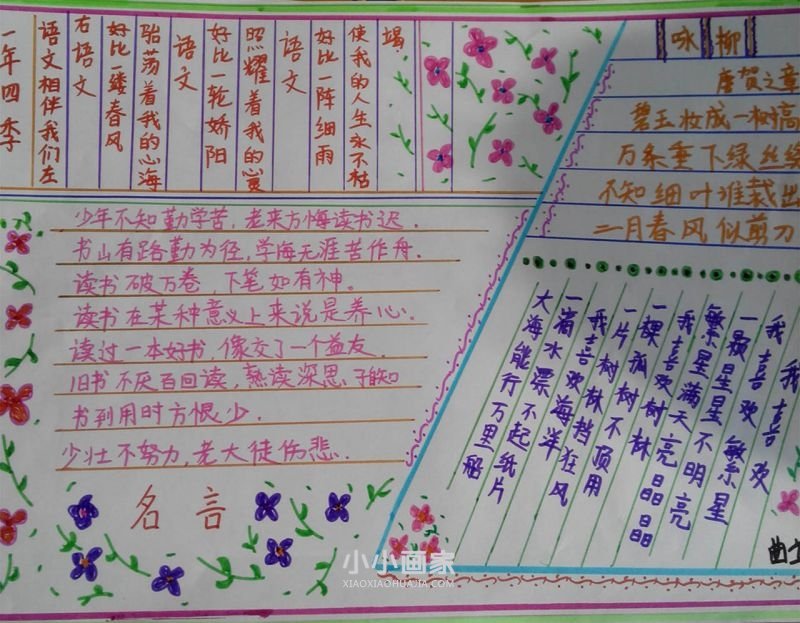 一年四季
语文相伴我们左
右语文
好比一缕春风
骀荡着我的心海
语文
好比一轮娇阳
照耀着我的心灵
语文
好比一阵细雨
使我的人生永不枯
竭
咏柳
唐贺之章
碧玉妆成一树高
万条垂下绿丝绦
不知细叶谁裁出
二月春风似剪刀
少年不知勤学苦,老来方悔读书迟.
书山有路勤为径,学海无涯苦作舟.
读书破万卷,下笔如有神。
读书在某种意义上来说是养心.
读过一本好书,像交了一个益友.
旧书不厌百回读,熟读深思子自知
书到用时方恨少.
少壮不努力,老大徒伤悲.
名言
我喜欢
我喜欢繁星
一颗星星不明亮
繁星满天亮晶晶
我喜欢树林
一棵孤树不顶用
一片树林挡狂风
我喜欢海洋
一滴水漂不起纸片
大海能行万里船
小小画家
XIAOXIAOHUAJIA.COM